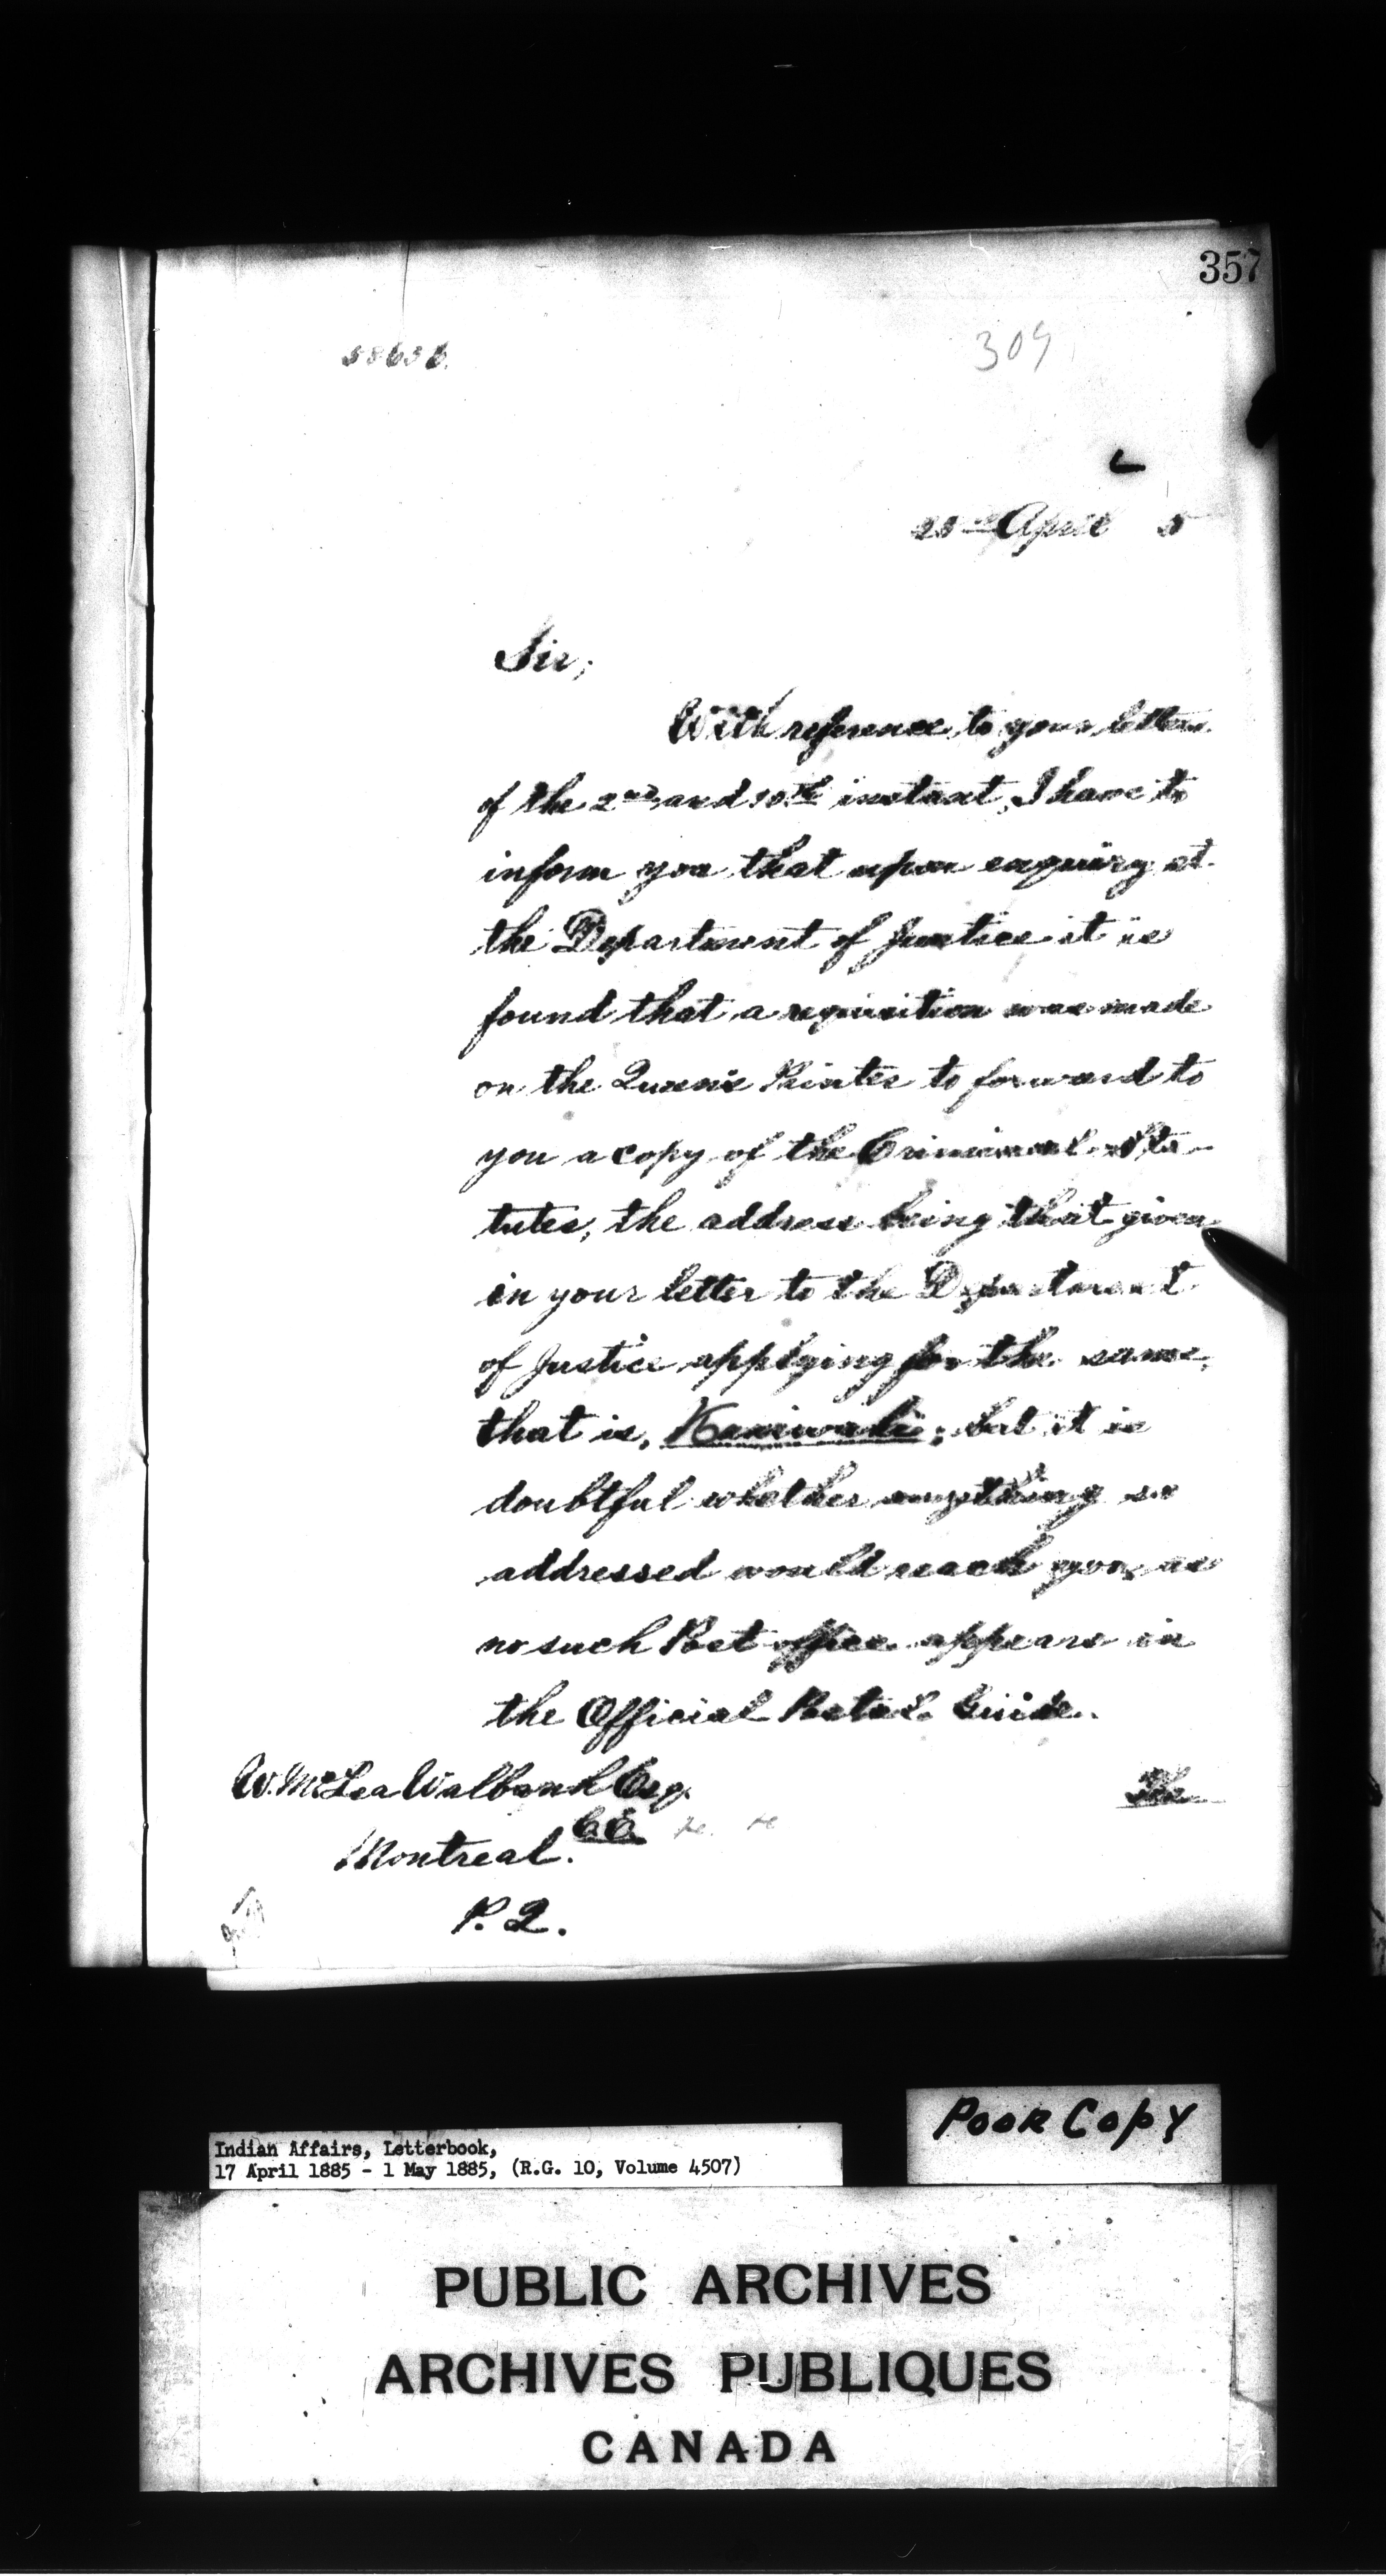 357
309
58636.
April 5
Sir,
With reference to your letters
of the 2nd and 10th instant, I have to
inform you that upon enquiry at
the Department of Justice it is
found that a requisition was made
on the Queen's Printer to forward to
you a copy of the Criminal Sta-
tutes, the address being that given
in your letter to the Department
of Justice applying for the same,
that is, ; but it is
doubtful whether anything so
addressed would reach you, as
no such Post office appears in
the Official Postal Guide.
The
W. McLea Walbank Esq.
C.E.
Montreal.
P.Q.
POOR COPY
Indian Affairs, Letterbook,
17 April 1885 - 1 May 1885, (R.G. 10, Volume 4507)
PUBLIC ARCHIVES
ARCHIVES PUBLIQUES
CANADA